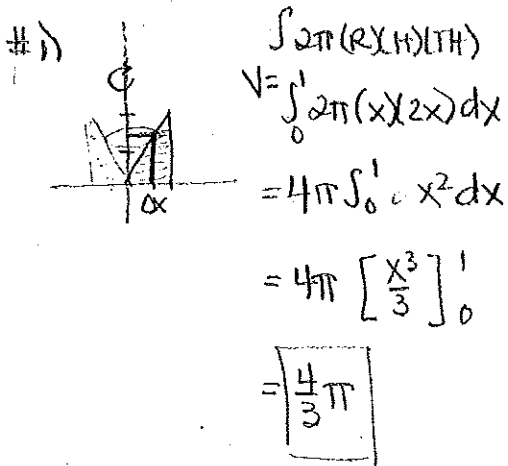 #1)
∫2π(R)(H)(TH)
V= ∫₀¹ 2π(x)(2x)dx
Δx
= 4π ∫₀¹ x² dx
= 4π [x³/3]₀¹
= 4/3 π